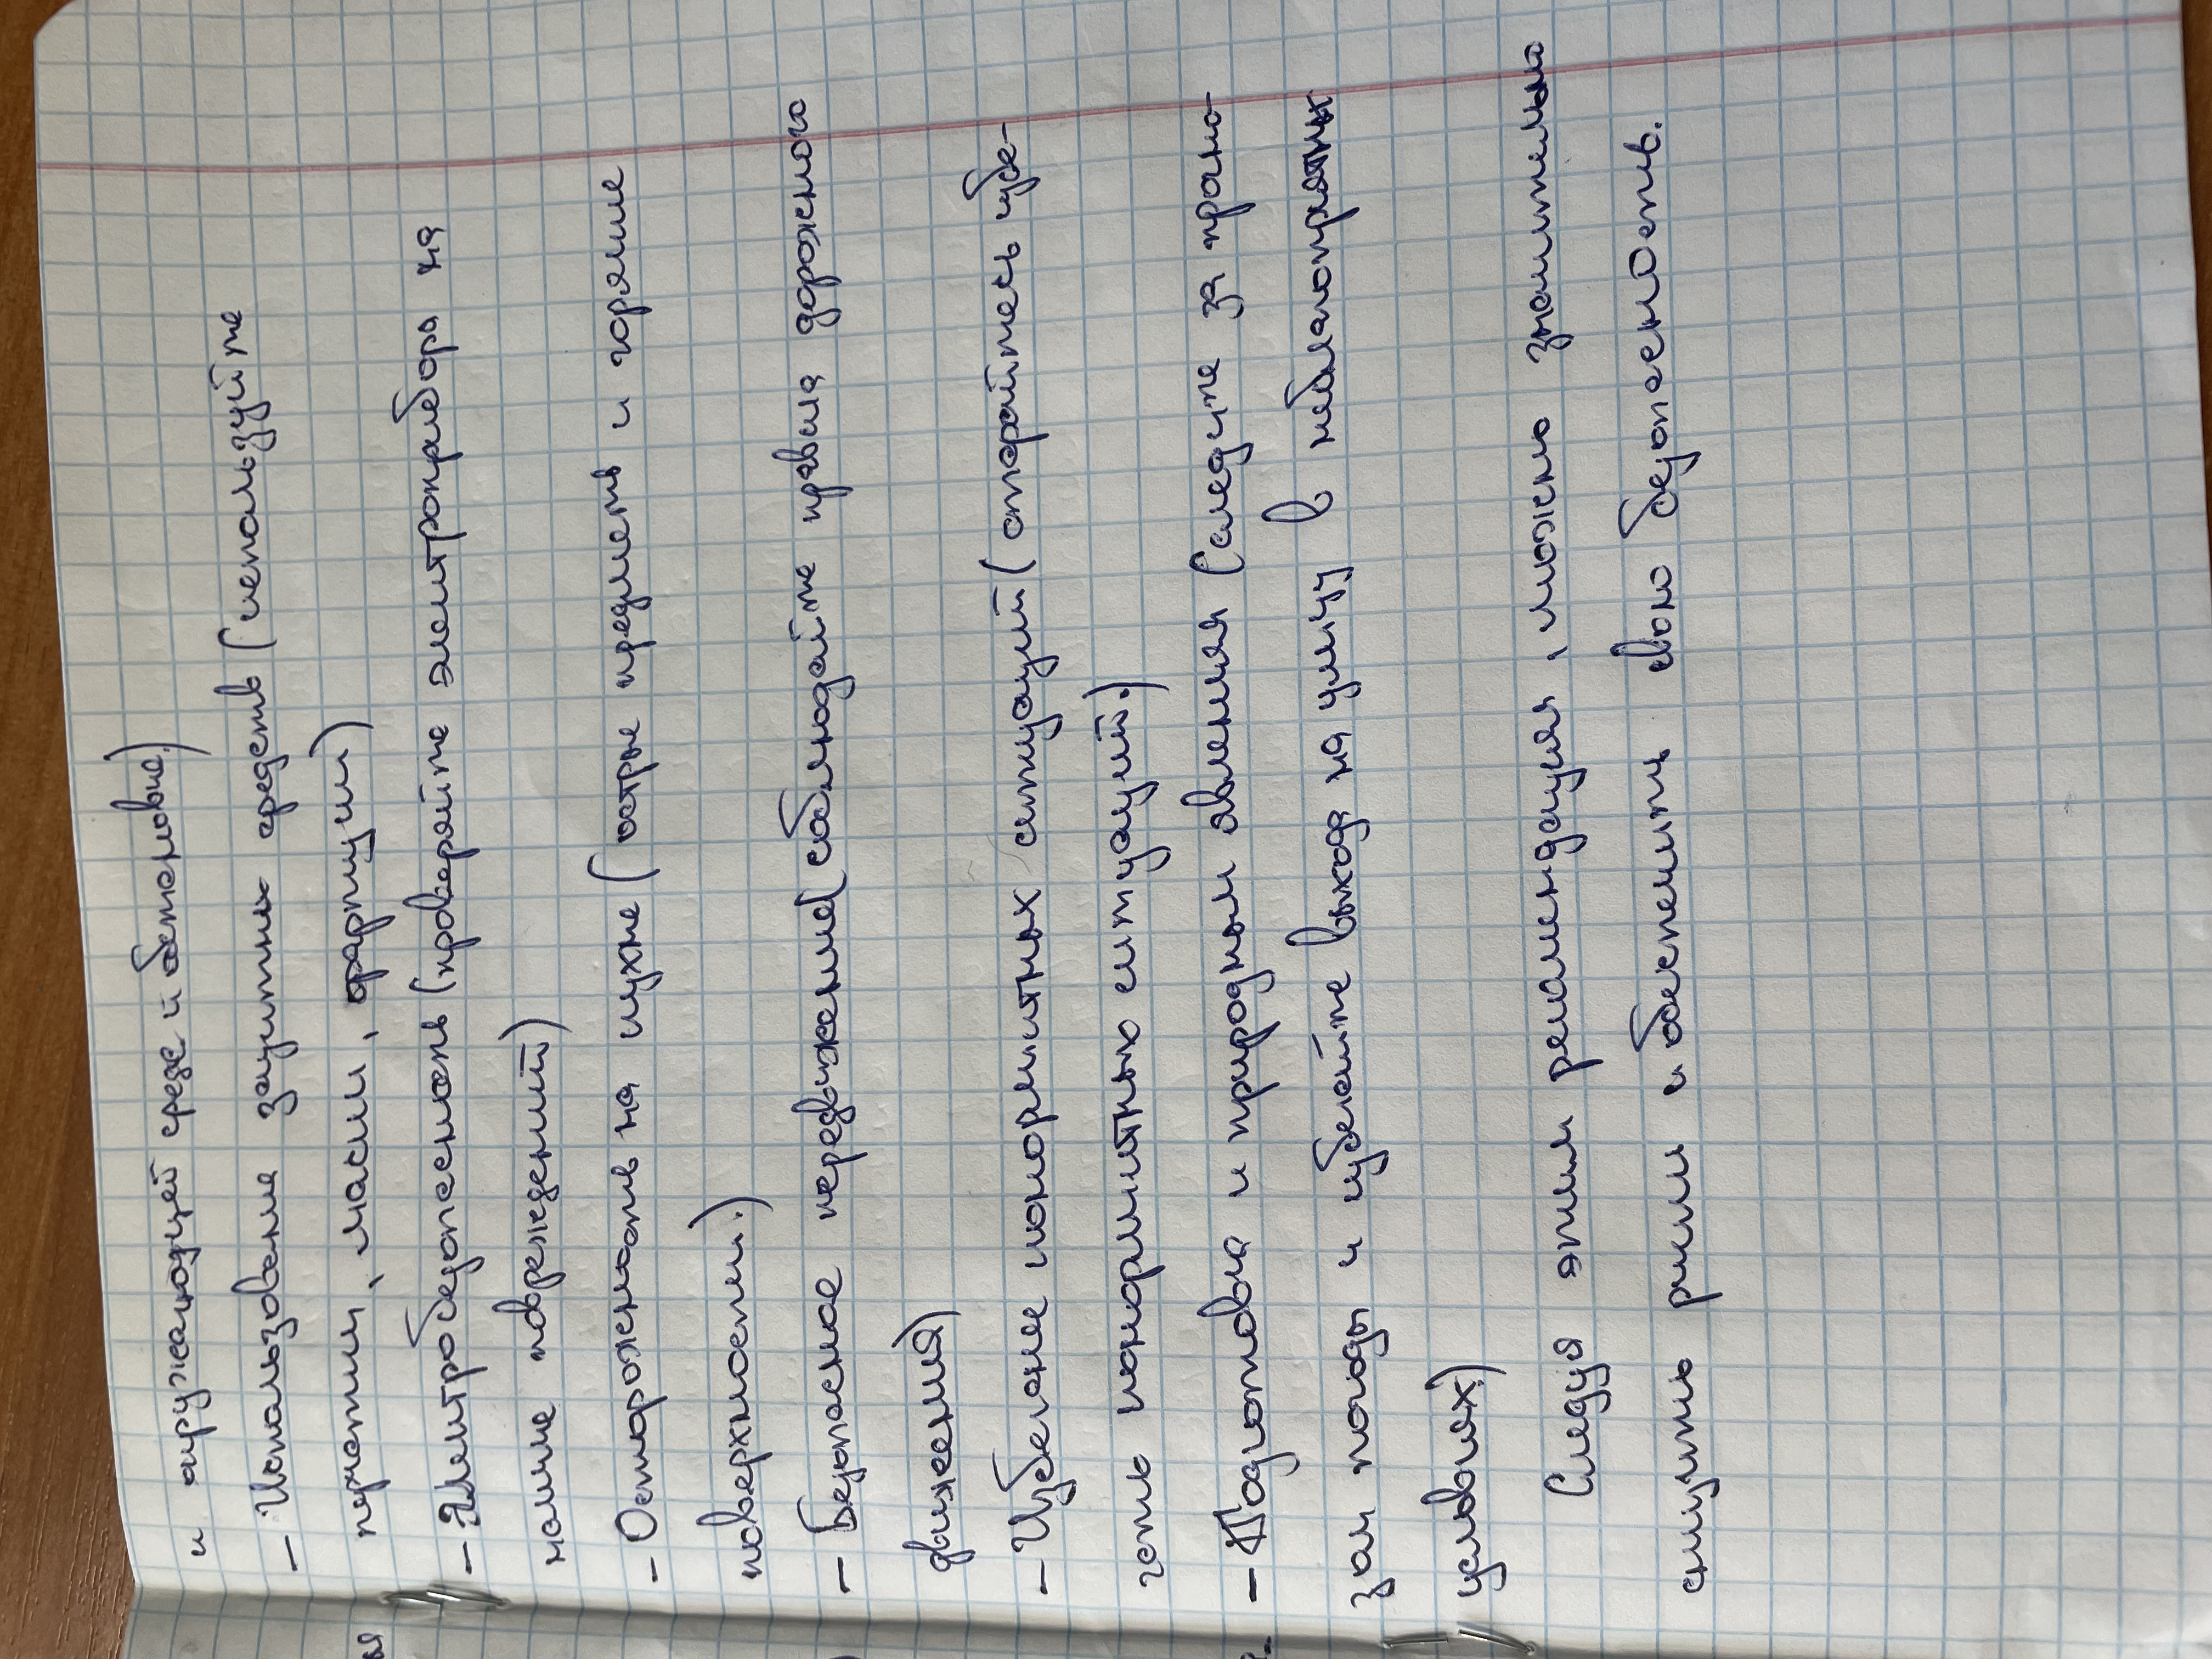 и окружающей среде и обстановке.)
- Использование защитных средств (используйте
перчатки, маски, фартуки)
- Электробезопасность (проверяйте электроприбора на
наличие повреждений)
- Осторожность на кухне (острые предметы и горячие
поверхности.)
- Безопасное передвижение (соблюдайте правила дорожного
движения)
- Избегание конфликтных ситуаций (старайтесь избе-
гать конфликтных ситуаций.)
- Подготовка к природным явлениям (следите за прогно-
зом погоды и избегайте выхода на улицу в неблагоприятных
условиях)
Следуя этим рекомендациям, можно значительно
снизить риски и обеспечить свою безопасность.